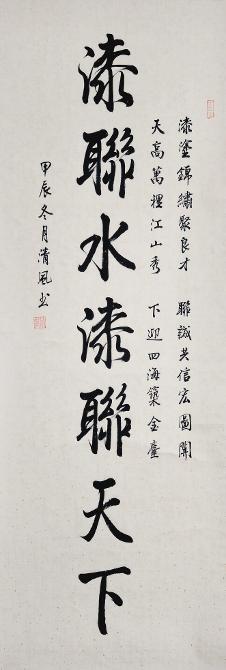 漆塗錦繡聚良才 聯誠共信宏圖開
天高萬裡江山秀 下迎四海築金臺
漆聯水漆聯天下
甲辰冬月清風书